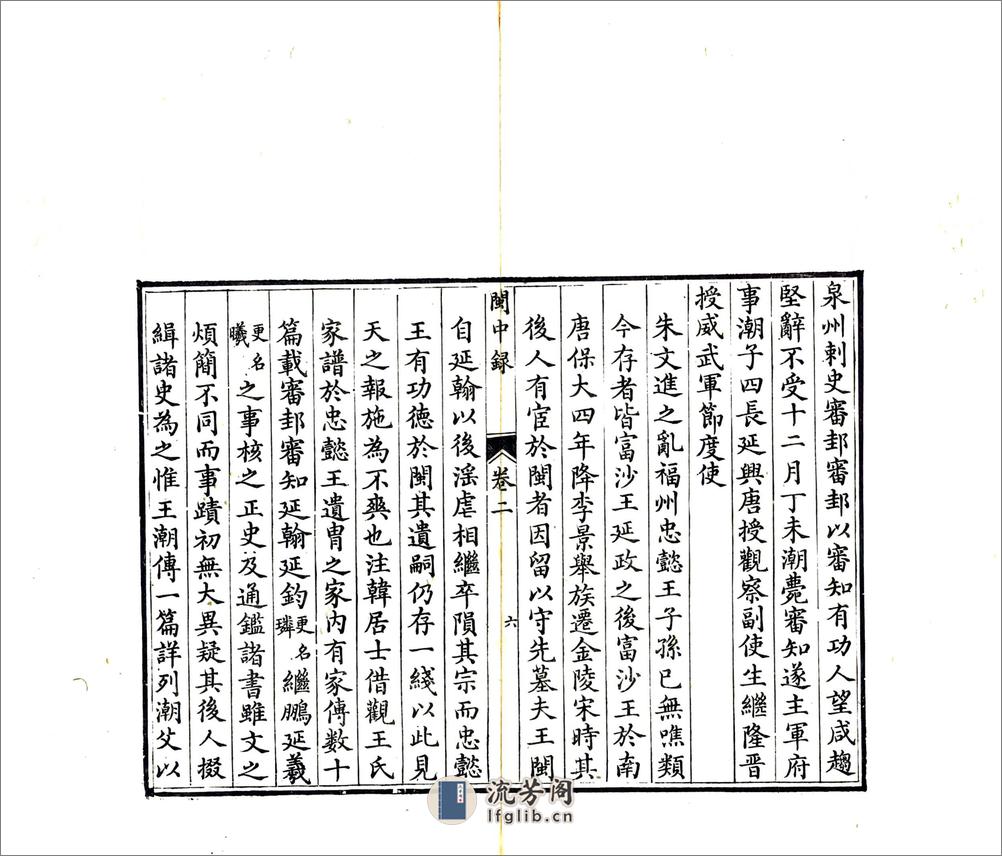 泉州刺史審邽審邽以審知有功人望咸趨
堅辭不受十二月丁未潮薨審知遂主軍府
事潮子四長延興唐授觀察副使生繼隆晋
授威武軍節度使
朱文進之亂福州忠懿王子孫已無噍類
今存者皆富沙王延政之後富沙王於南
唐保大四年降李景舉族遷金陵宋時其
後人有宦於閩者因留以守先墓夫王閩
閩中録 卷二 六
自延翰以後淫虐相繼卒隕其宗而忠懿
王有功德於閩其遺嗣仍存一綫以此見
天之報施為不爽也注韓居士借觀王氏
家譜於忠懿王遺胄之家内有家傳數十
篇載審邽審知延翰延鈞更名璘繼鵬延羲
更名曦之事核之正史及通鑑諸書雖文之
煩簡不同而事蹟初無大異疑其後人掇
緝諸史為之惟王潮傳一篇詳列潮父以
流芳阁
lfglib.cn